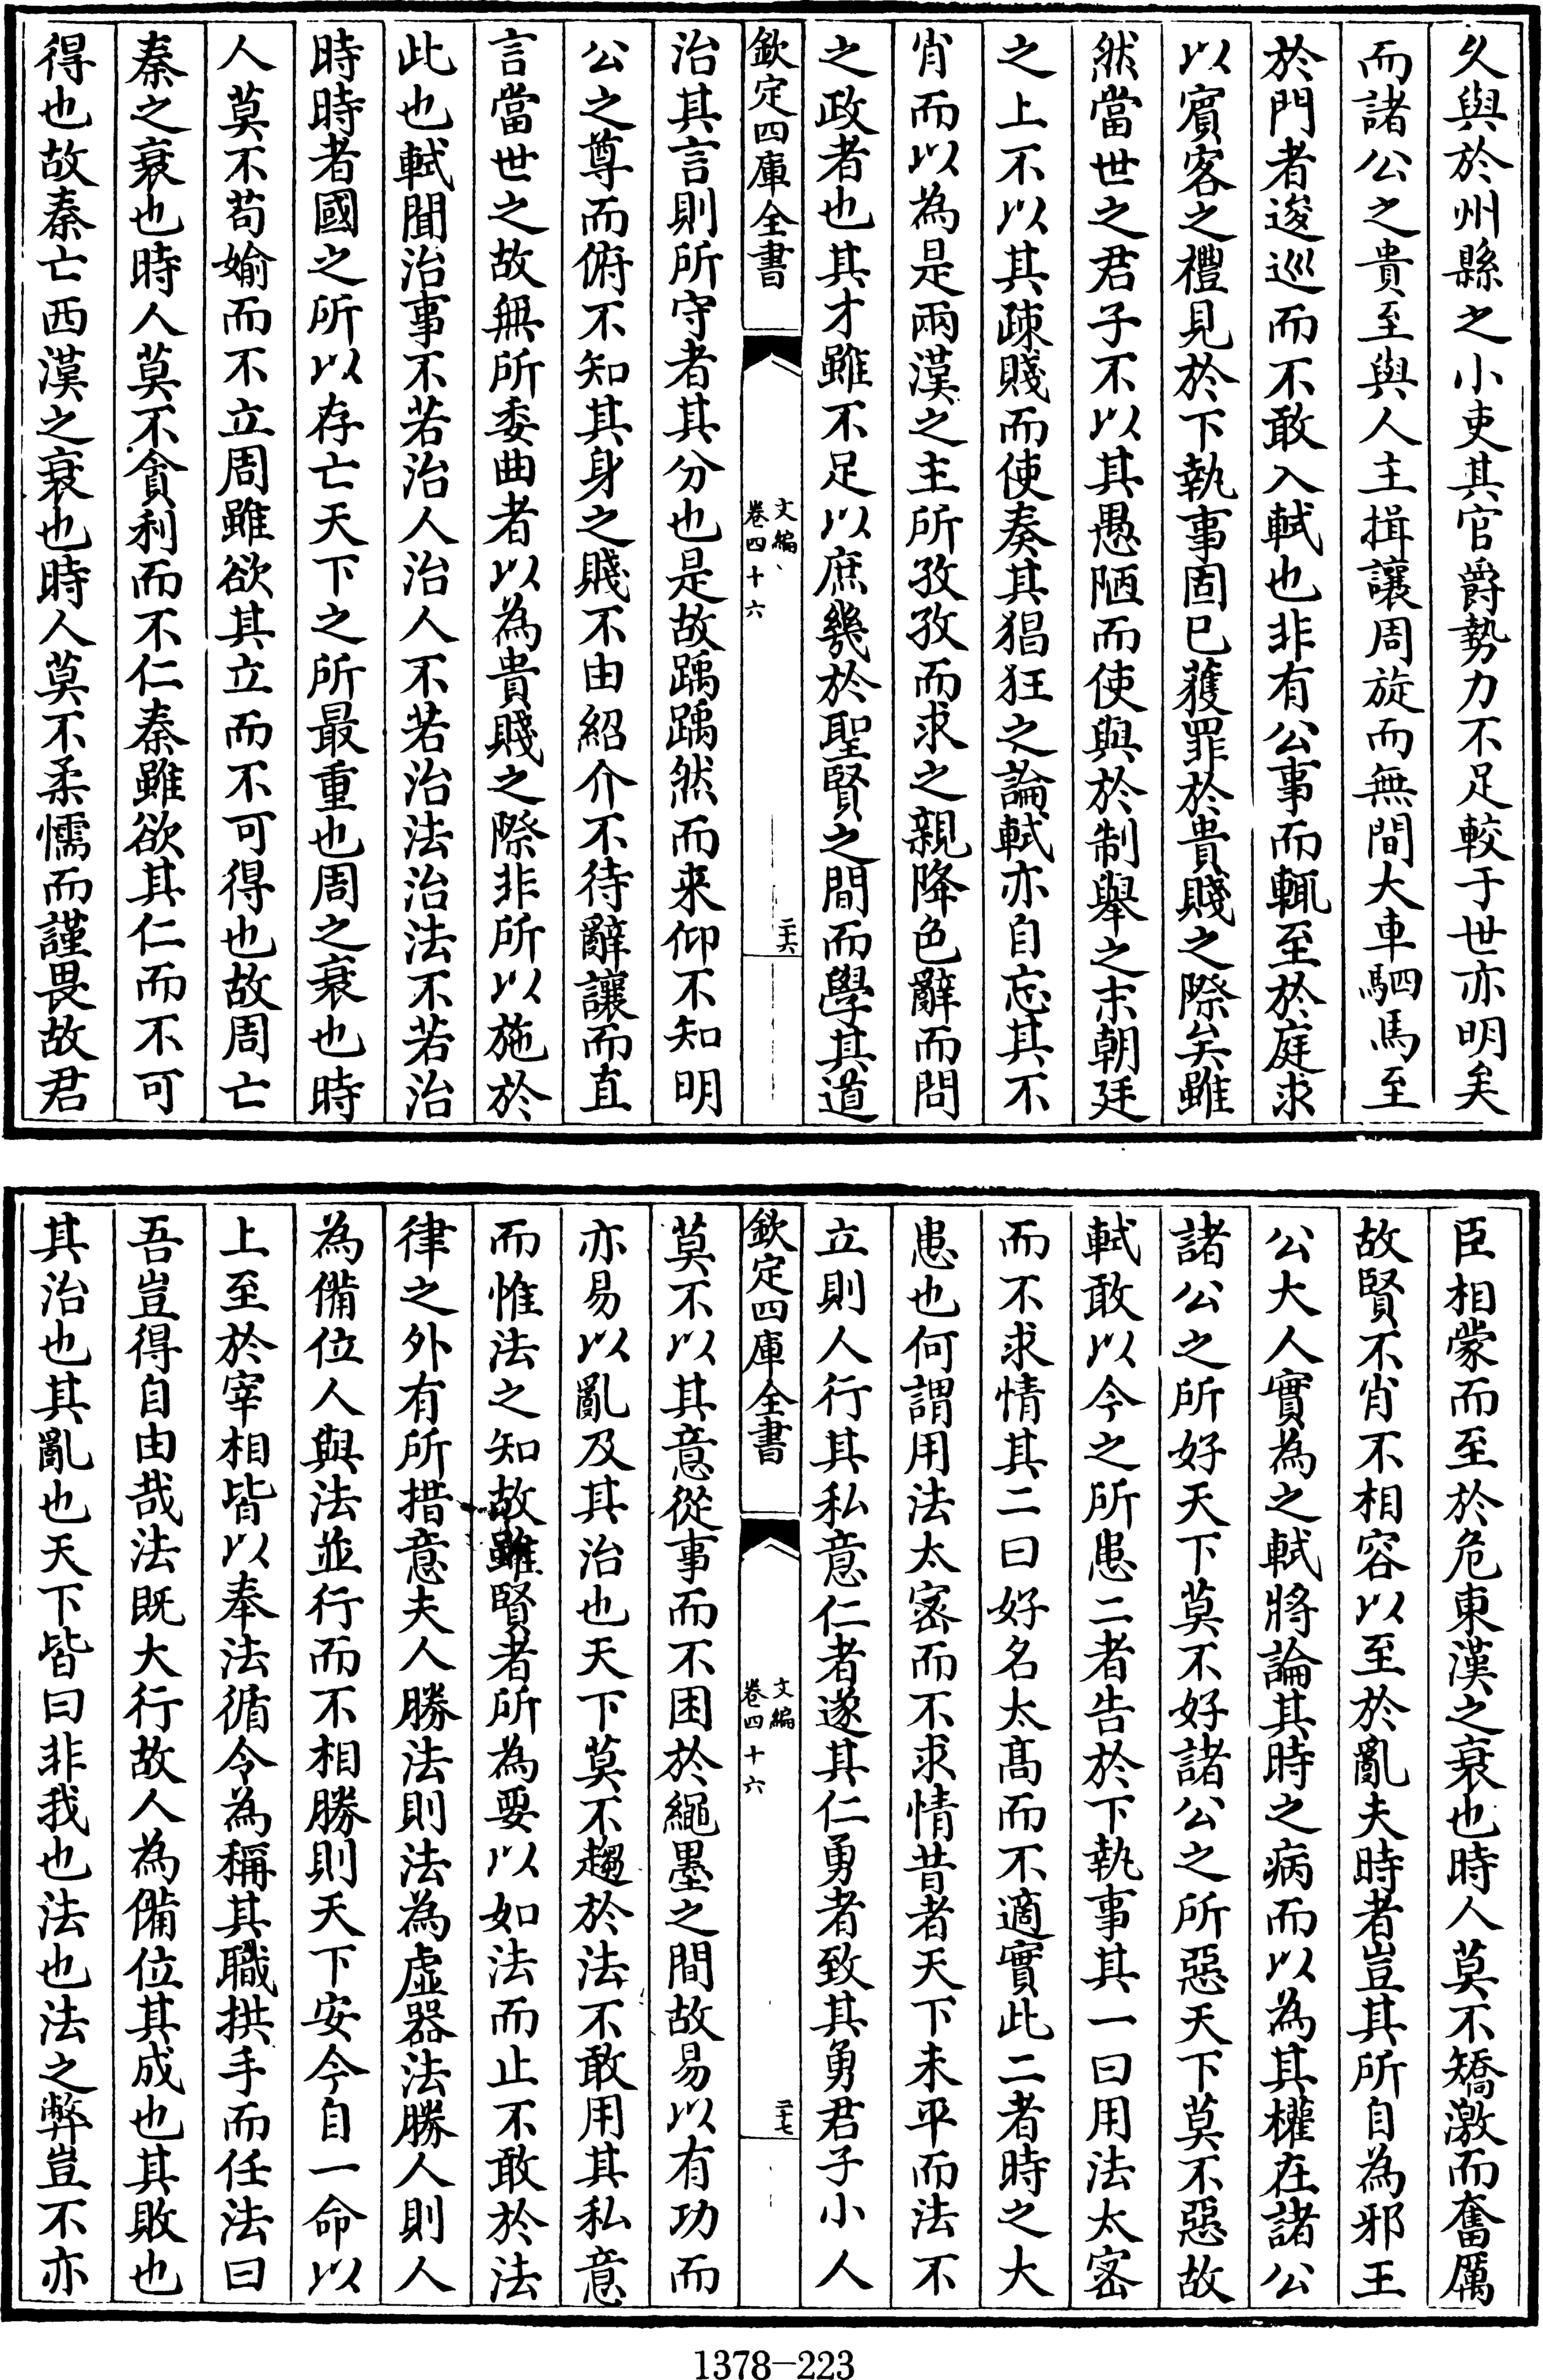 久與於州縣之小吏其官爵勢力不足較于世亦明矣
而諸公之貴至與人主揖讓周旋而無間大車駟馬至
於門者逡巡而不敢入軾也非有公事而輒至於庭求
以賓客之禮見於下執事固已獲罪於貴賤之際矣雖
然當世之君子不以其愚陋而使與於制舉之末朝廷
之上不以其疎賤而使奏其猖狂之論軾亦自忘其不
肖而以為是兩漢之主所孜孜而求之親降色辭而問
之政者也其才雖不足以庶幾於聖賢之間而學其道
欽定四庫全書
文編
卷四十六
二十六
治其言則所守者其分也是故踽踽然而来仰不知明
公之尊而俯不知其身之賤不由紹介不待辭讓而直
言當世之故無所委曲者以為貴賤之際非所以施於
此也軾聞治事不若治人治人不若治法治法不若治
時時者國之所以存亡天下之所最重也周之衰也時
人莫不苟媮而不立周雖欲其立而不可得也故周亡
秦之衰也時人莫不貪利而不仁秦雖欲其仁而不可
得也故秦亡西漢之衰也時人莫不柔懦而謹畏故君
臣相蒙而至於危東漢之衰也時人莫不矯激而奮厲
故賢不肖不相容以至於亂夫時者豈其所自為邪王
公大人實為之軾將論其時之病而以為其權在諸公
諸公之所好天下莫不好諸公之所惡天下莫不惡故
軾敢以今之所患二者告於下執事其一曰用法太密
而不求情其二曰好名太髙而不適實此二者時之大
患也何謂用法太密而不求情昔者天下未平而法不
立則人行其私意仁者遂其仁勇者致其勇君子小人
欽定四庫全書
文編
卷四十六
二十七
莫不以其意從事而不困於繩墨之間故易以有功而
亦易以亂及其治也天下莫不趨於法不敢用其私意
而惟法之知故雖賢者所為要以如法而止不敢於法
律之外有所措意夫人勝法則法為虛器法勝人則人
為備位人與法並行而不相勝則天下安今自一命以
上至於宰相皆以奉法循令為稱其職拱手而任法曰
吾豈得自由哉法既大行故人為備位其成也其敗也
其治也其亂也天下皆曰非我也法也法之弊豈不亦
1378-223